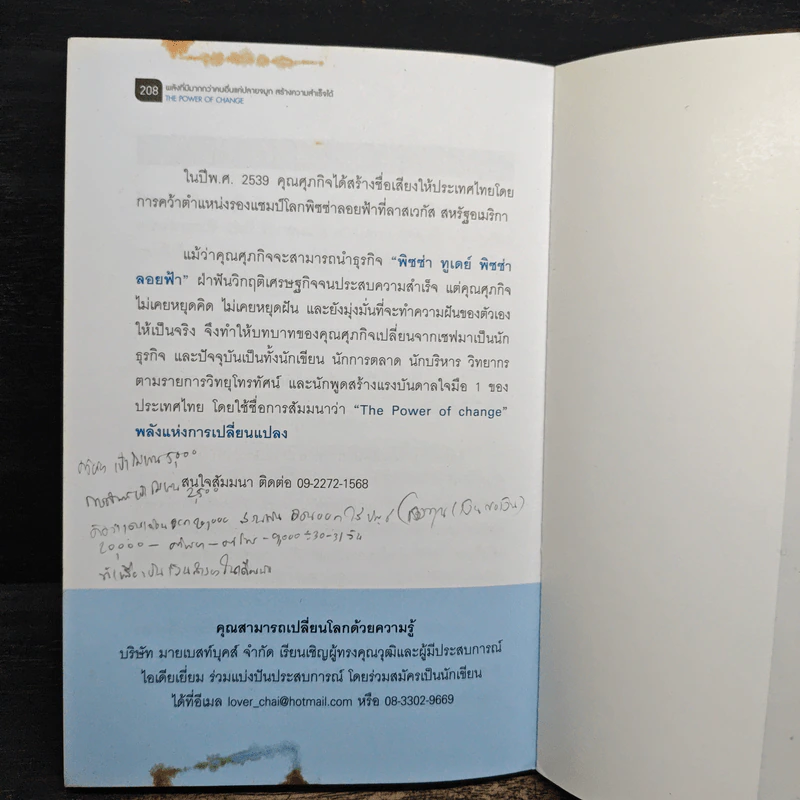 208
พลังที่มีมากกว่าคนอื่นแค่ปลายจมูก สร้างความสำเร็จได้
THE POWER OF CHANGE
ในปีพ.ศ. 2539 คุณศุภกิจได้สร้างชื่อเสียงให้ประเทศไทยโดย
การคว้าตำแหน่งรองแชมป์โลกพิซซ่าลอยฟ้าที่ลาสเวกัส สหรัฐอเมริกา
แม้ว่าคุณศุภกิจจะสามารถนำธุรกิจ “พิซซ่า ทูเดย์ พิซซ่า
ลอยฟ้า” ฝ่าฟันวิกฤติเศรษฐกิจจนประสบความสำเร็จ แต่คุณศุภกิจ
ไม่เคยหยุดคิด ไม่เคยหยุดฝัน และยังมุ่งมั่นที่จะทำความฝันของตัวเอง
ให้เป็นจริง จึงทำให้บทบาทของคุณศุภกิจเปลี่ยนจากเชฟมาเป็นนัก
ธุรกิจ และปัจจุบันเป็นทั้งนักเขียน นักการตลาด นักบริหาร วิทยากร
ตามรายการวิทยุโทรทัศน์ และนักพูดสร้างแรงบันดาลใจมือ 1 ของ
ประเทศไทย โดยใช้ชื่อการสัมมนาว่า “The Power of change”
พลังแห่งการเปลี่ยนแปลง
สนใจสัมมนา ติดต่อ 09-2272-1568
คุณสามารถเปลี่ยนโลกด้วยความรู้
บริษัท มายเบสท์บุคส์ จำกัด เรียนเชิญผู้ทรงคุณวุฒิและผู้มีประสบการณ์
ไอเดียเยี่ยม ร่วมแบ่งปันประสบการณ์ โดยร่วมสมัครเป็นนักเขียน
ได้ที่อีเมล lover_chai@hotmail.com หรือ 08-3302-9669